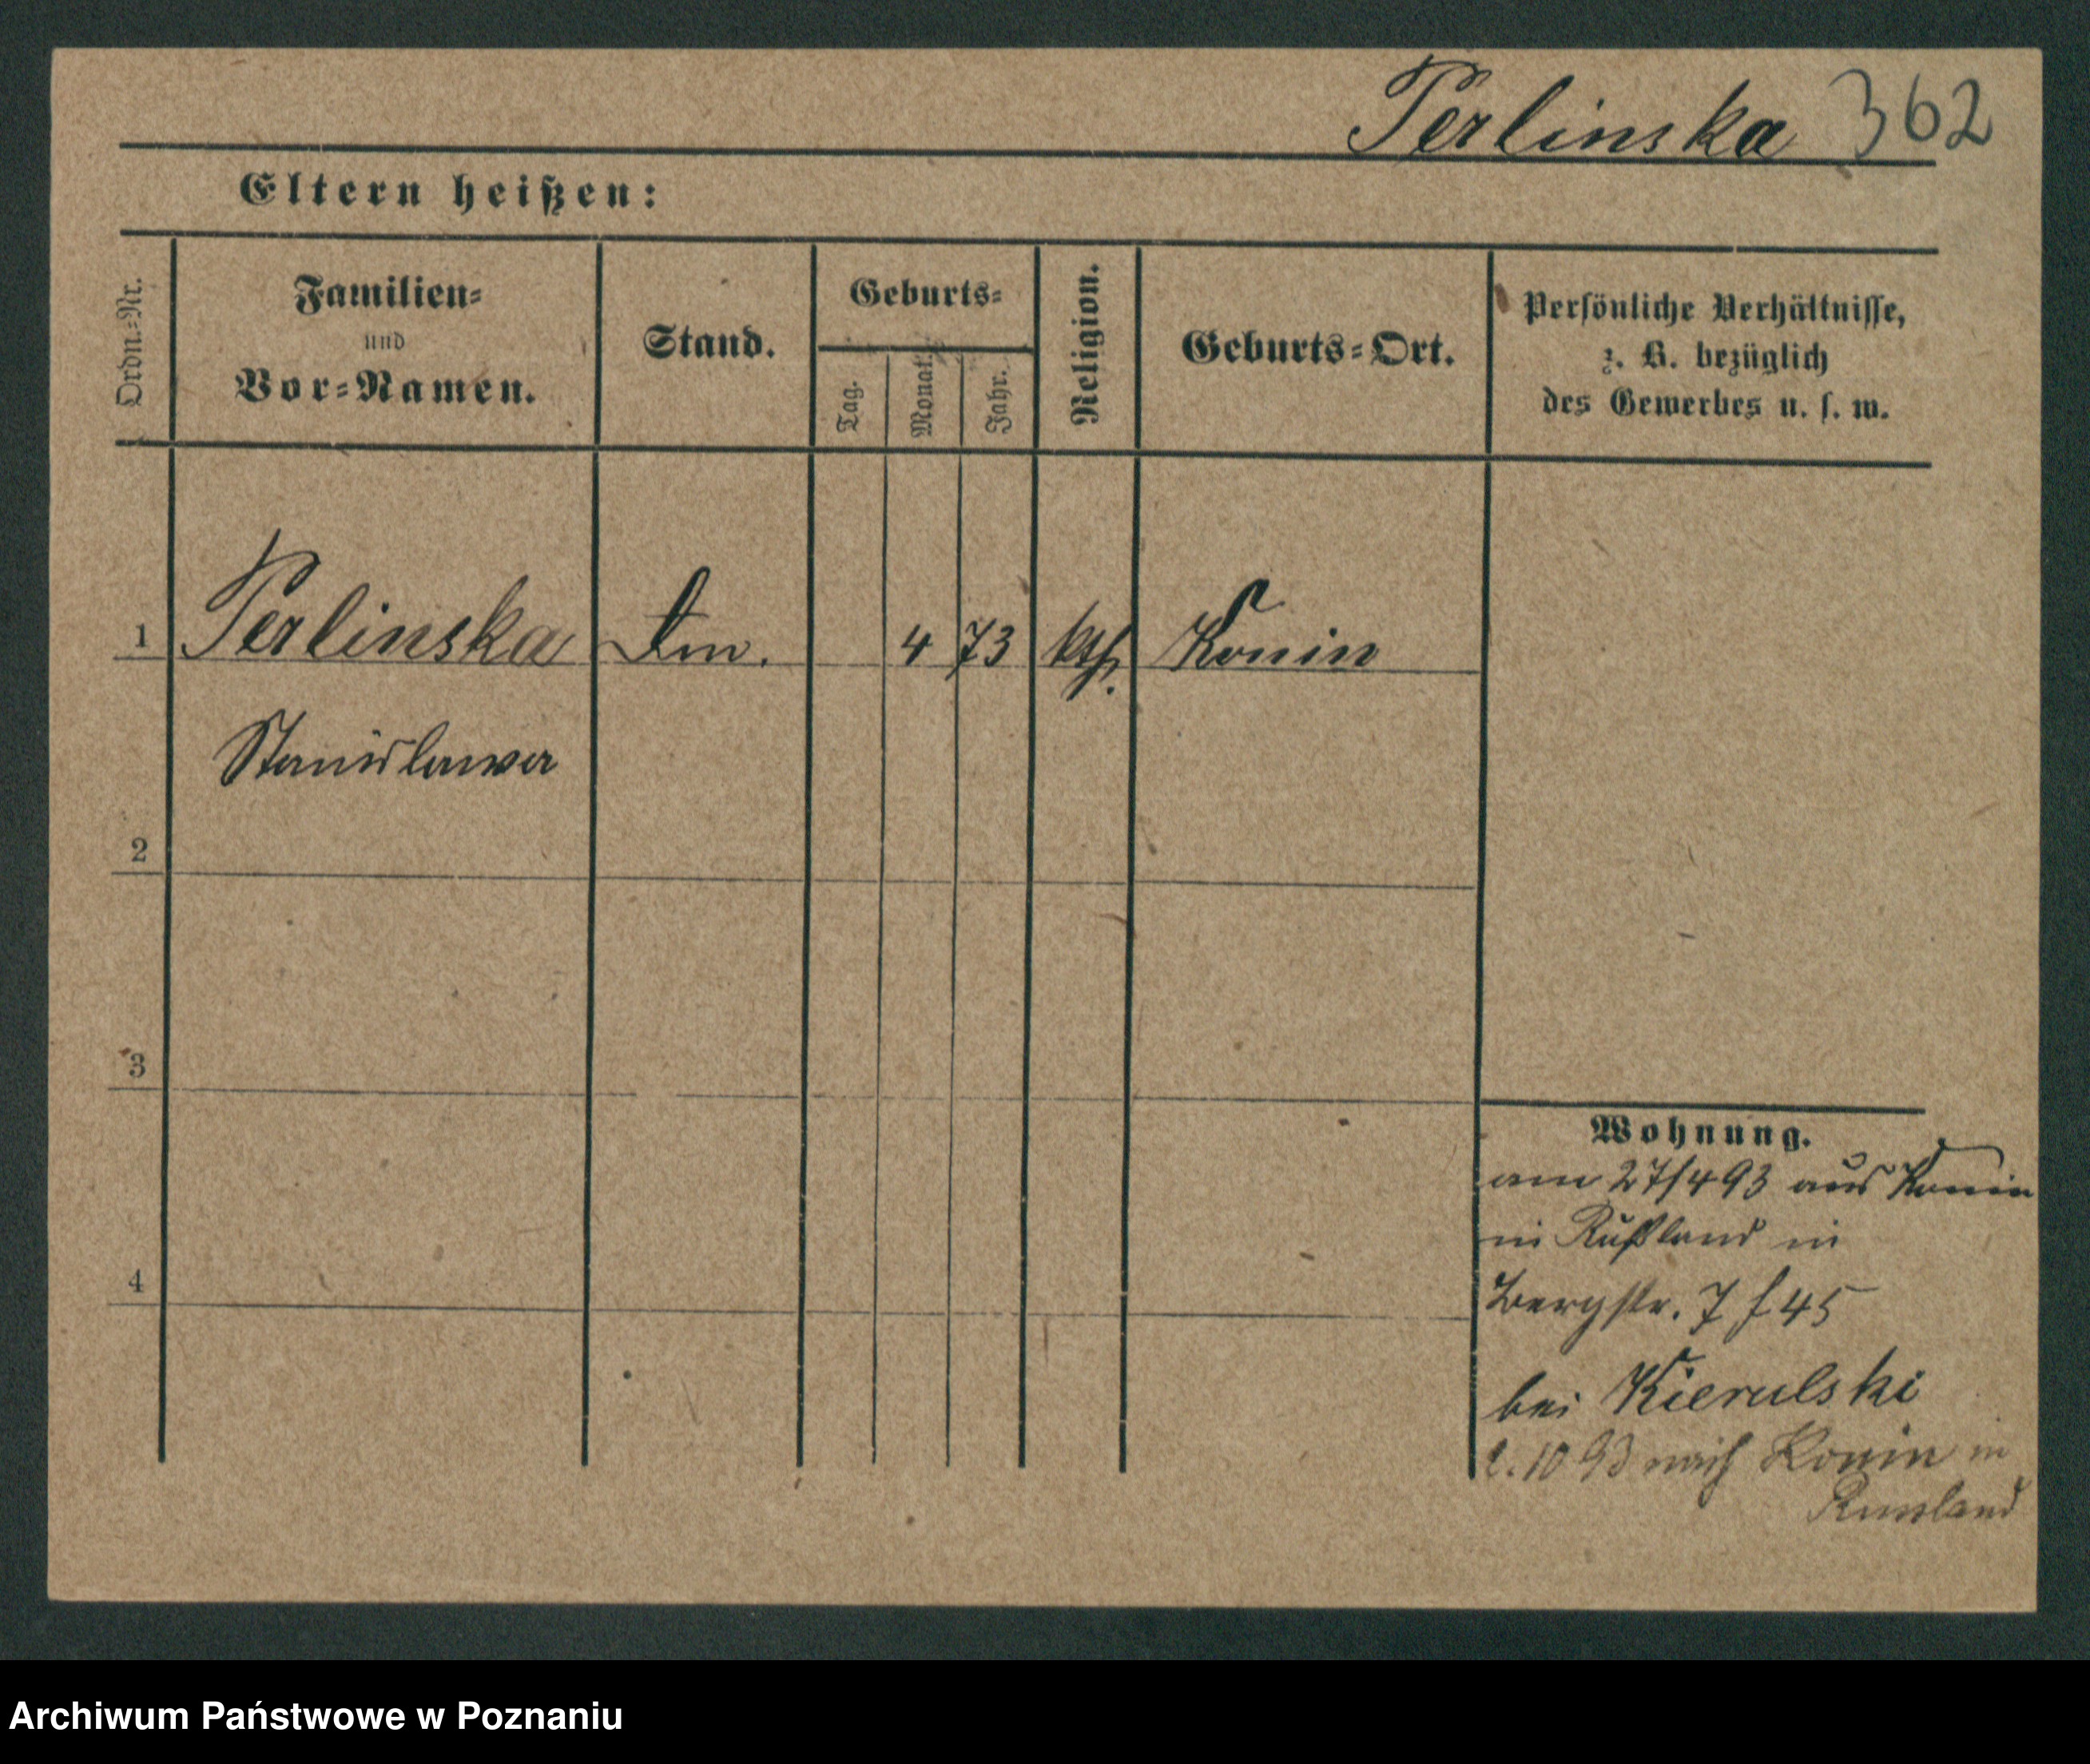 Perlinska 362
Eltern heißen:
Ordn.=Nr.
Familien=
und
Vor=Namen.
Stand.
Geburts=
Tag.
Monat.
Jahr.
Religion.
Geburts=Ort.
Persönliche Verhältnisse,
z. B. bezüglich
des Gewerbes u. s. w.
1 Perlinska 4 73 kth. Konin
Stanislawa
2
3
4
Wohnung.
am 27/4 93 aus Konin
in Rußland in
Bergstr. 7 f 45
bei Kierulski
2. 10 93 nach Konin in
Russland
Archiwum Państwowe w Poznaniu